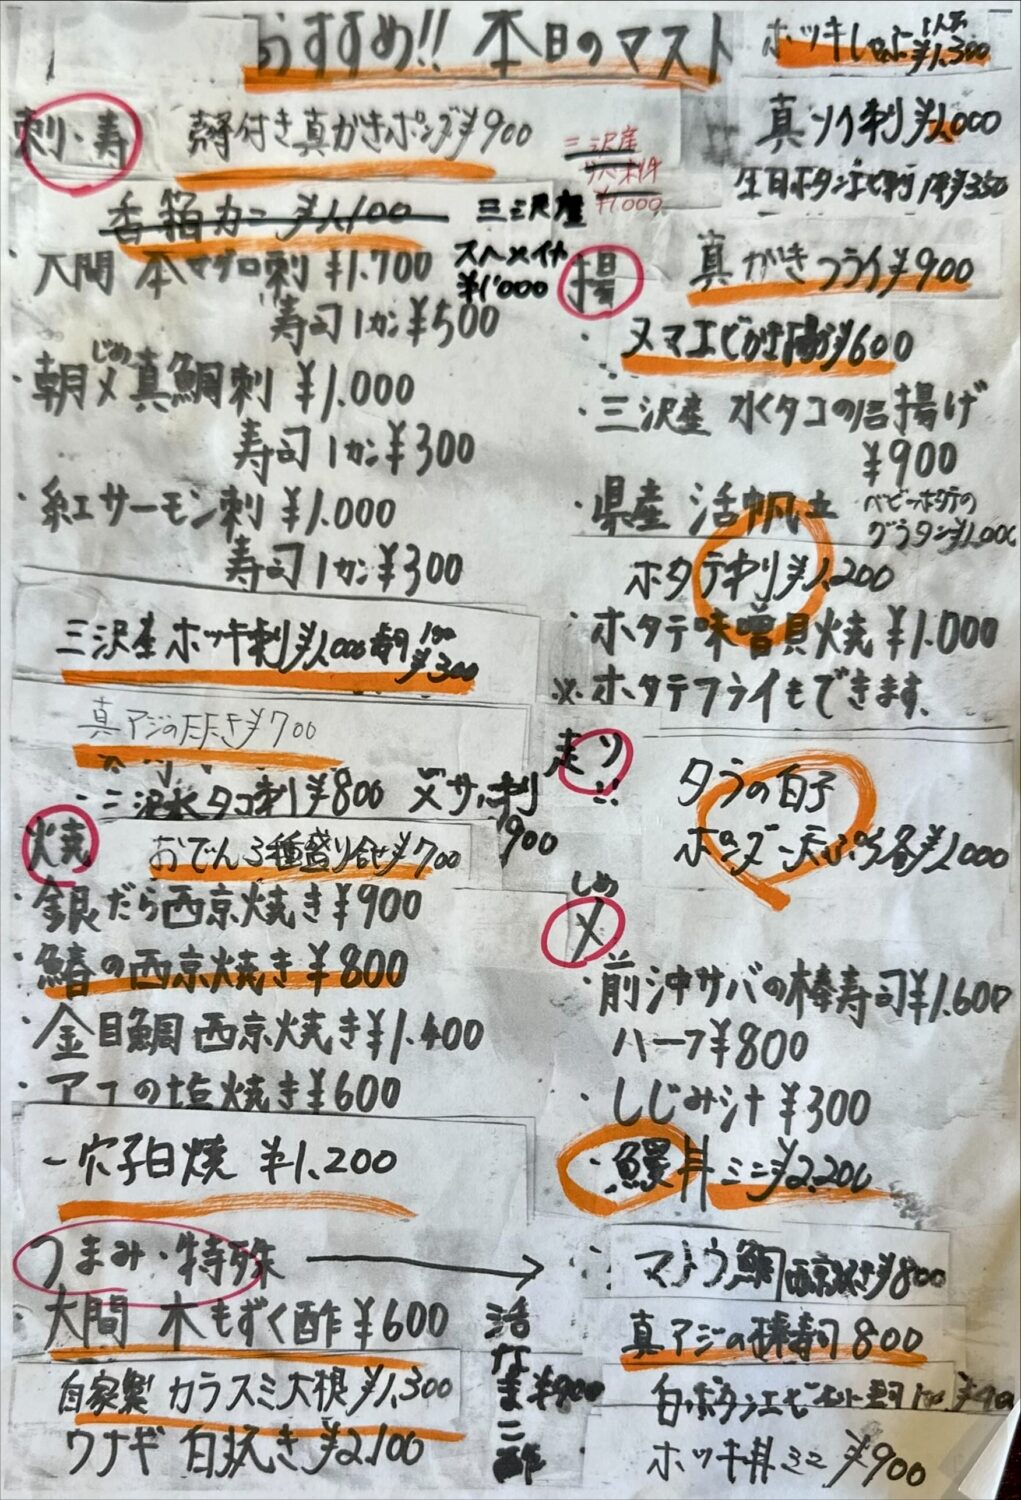 おすすめ!! 本日のマスト
刺・寿
殻付き真がきポンズ¥900
香箱カニ ¥1,100
大間 本マグロ刺 ¥1.700
寿司1カン¥500
三沢産
¥1,000
朝〆真鯛刺 ¥1.000
じめ
寿司1カン¥300
紅サーモン刺 ¥1.000
寿司1カン¥300
三沢産ホッキ刺¥1,000 ¥300
真アジのたたき¥700
三沢水タコ刺¥800 〆サバ刺
900
焼
おでん3種盛り合せ¥700
・銀だら西京焼き¥900
・鰆の西京焼き¥800
・金目鯛西京焼き¥1.400
・アユの塩焼き¥600
-穴子白焼 ¥1,200
つまみ・特殊
・大間 木もずく酢¥600
自家製カラスミ大根¥1,300
ウナギ白焼き¥2,100
活なまこ酢
¥900
¥1,300
真ソイ刺¥1,000
¥350
三沢産
¥1000
揚
真がきフライ¥900
・ヌマエビかき揚げ¥600
・三沢産 水タコの唐揚げ
¥900
・県産 活帆立
ベビーホタテの
グラタン¥1,000
ホタテ刺¥1,200
・ホタテ味噌貝焼¥1.000
※ホタテフライもできます。
走り!!
タラの白子
ポンズ・天ぷら各¥1000
しめ
〆
・前沖サバの棒寿司¥1.600
ハーフ¥800
・しじみ汁 ¥300
・鰻丼ミニ¥2,200
マトウ鯛西京焼き¥800
真アジの棒寿司800
ホッキ丼ミニ¥900